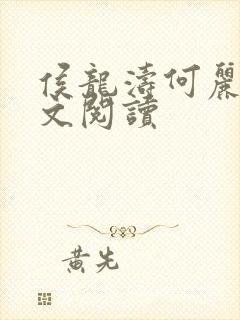 侯龍濤何麗
文閱讀
黃先